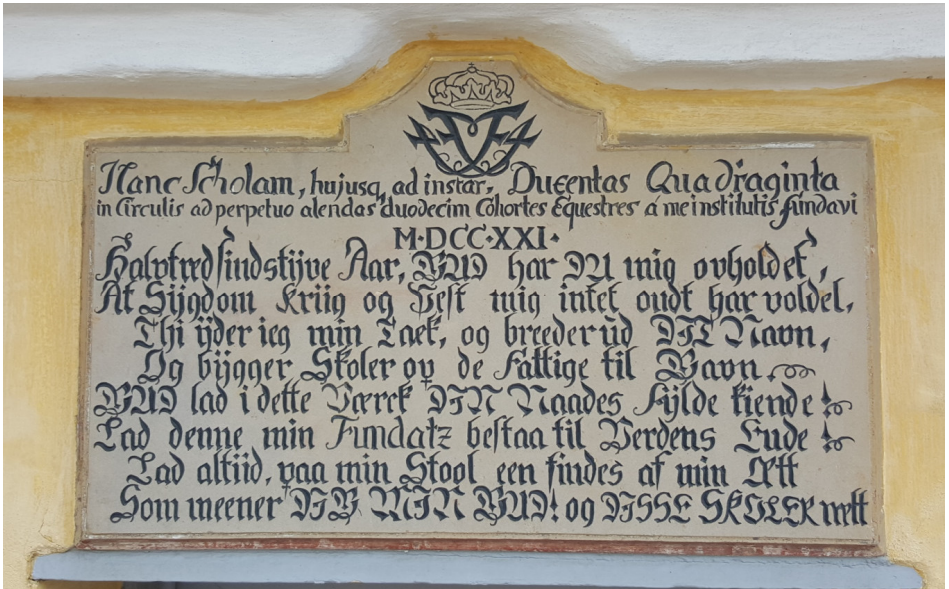 Hanc Scholam, hujusq, ad instar, Ducentas Quadraginta
in Circulis ad perpetuo alendas duodecim Cohortes Equestres á me institutis fundavi
M·DCC·XXI·
Halvfredsindstijve Aar, GUD har DU mig opholdet,
At Sijgdom Kriig og Pest mig intet ondt har voldet,
Thi ijder ieg min Tack, og breeder ud DIT Navn,
Og bijgger Skoler op de Fattige til Gavn,
GUD lad i dette Værck DIN Naades Fylde kiende!
Lad denne min Fundatz bestaa til Verdens Ende!
Lad altiid, paa min Stool een findes af min Ætt
Som meener DIG MIN GUD! og DISSE SKOLER rett